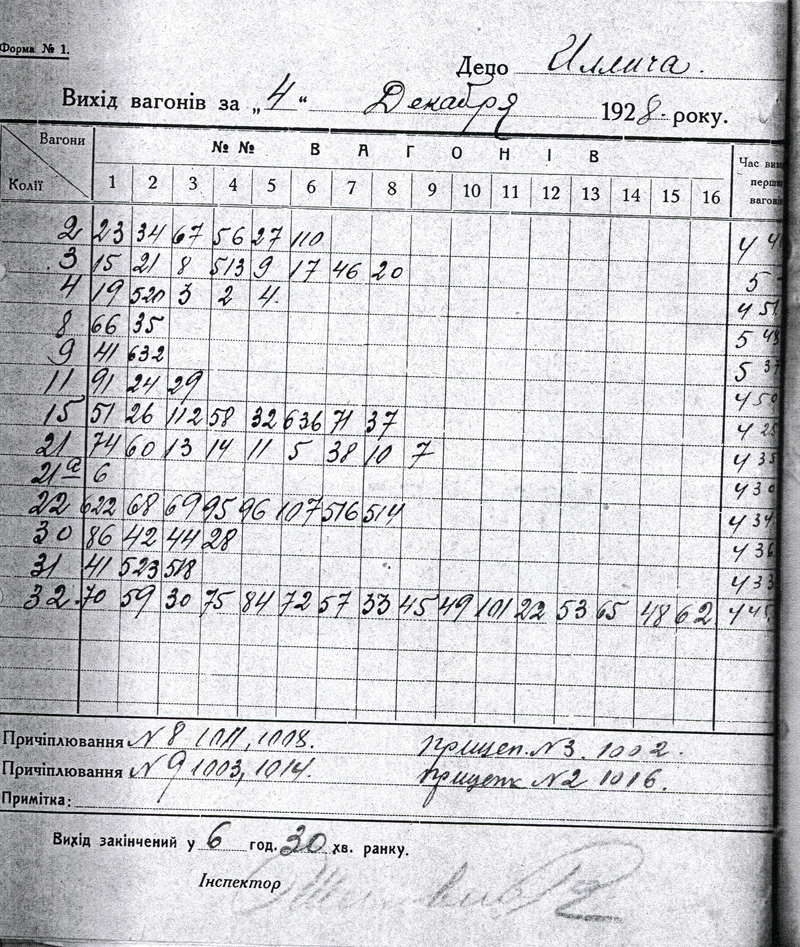 Форма № 1.
Депо Иллича.
Вихід вагонів за „4“ Декабря 1928 року.
Вагони № № ВАГОНІВ Час
Колії 1 2 3 4 5 6 7 8 9 10 11 12 13 14 15 16
2 23 34 67 56 27 110 4
3 15 21 8 513 9 17 46 20 5
4 19 520 3 2 4 4 51
8 66 35 5 48
9 41 632 5 37
11 91 24 29 4 50
15 51 26 112 58 32 636 71 37 4 25
21 74 60 13 14 11 5 38 10 7 4 35
21а 6 4 30
22 622 68 69 95 96 107 516 514 4 34
30 86 42 44 28 4 36
31 41 523 518 4 33
32 70 59 30 75 84 72 57 33 45 49 101 22 53 65 48 62 4
Причіплювання N 8 1011, 1008. прицеп. N3. 1002.
Причіплювання N 9 1003, 1014. N2 1016.
Примітка:
Вихід закінчений у 6 год. 30 хв. ранку.
Інспектор